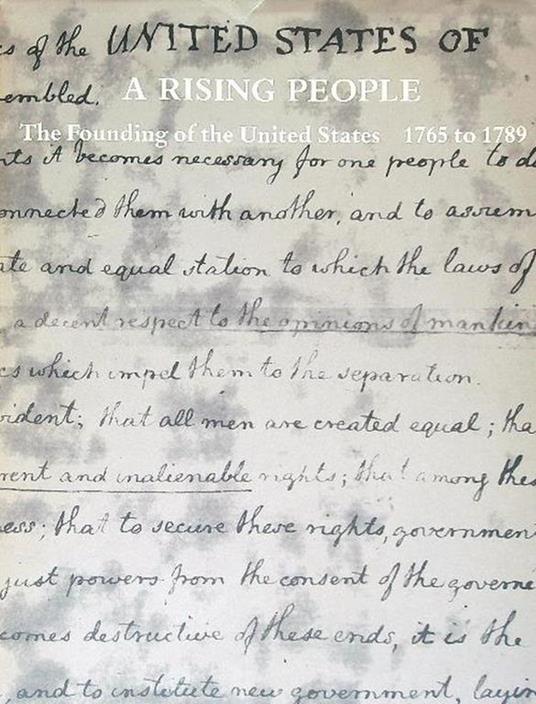 s of the UNITED STATES OF
embled. A RISING PEOPLE
The Founding of the United States 1765 to 1789
nts it becomes necessary for one people to d
onnected them with another, and to assum
ate and equal station to which the laws of
a decent respect to the opinions of mankin
es which impel them to the separation.
vident; that all men are created equal; tha
rent and inalienable rights; that among thes
ess; that to secure these rights, government
just powers from the consent of the governe
comes destructive of these ends, it is the
, and to institute new government, layin